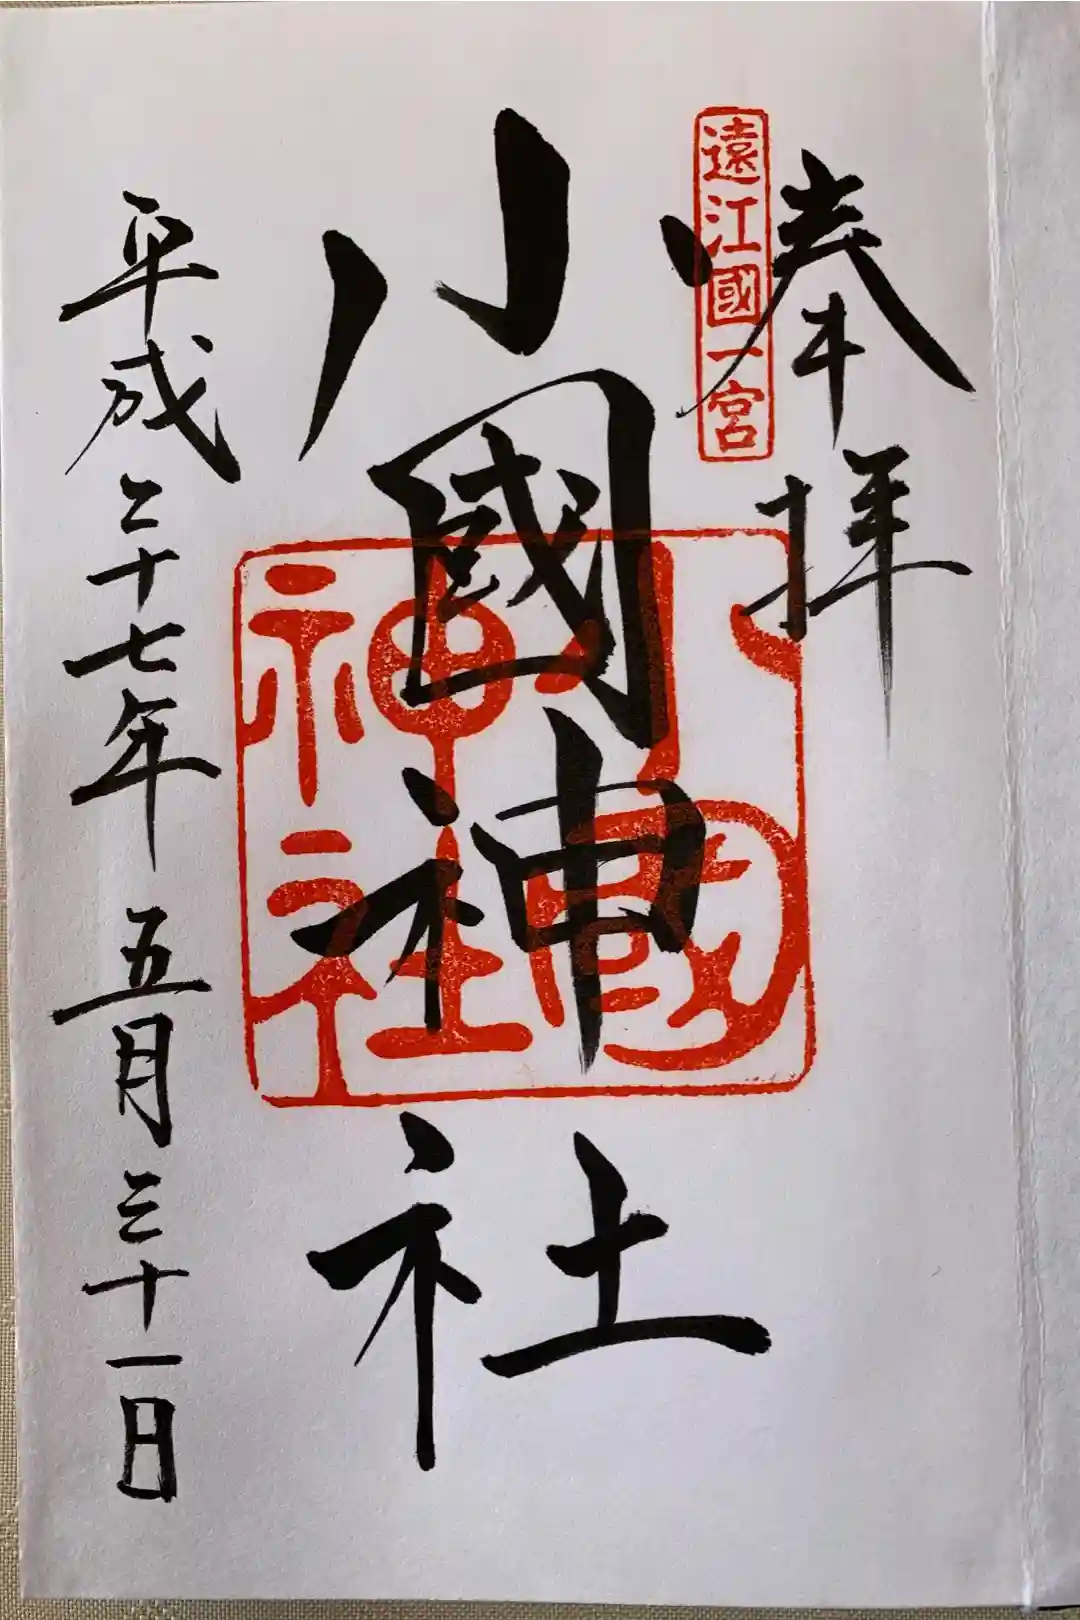 奉拝
遠江國一宮
小國神社
小國
神社
平成二十七年 五月三十一日